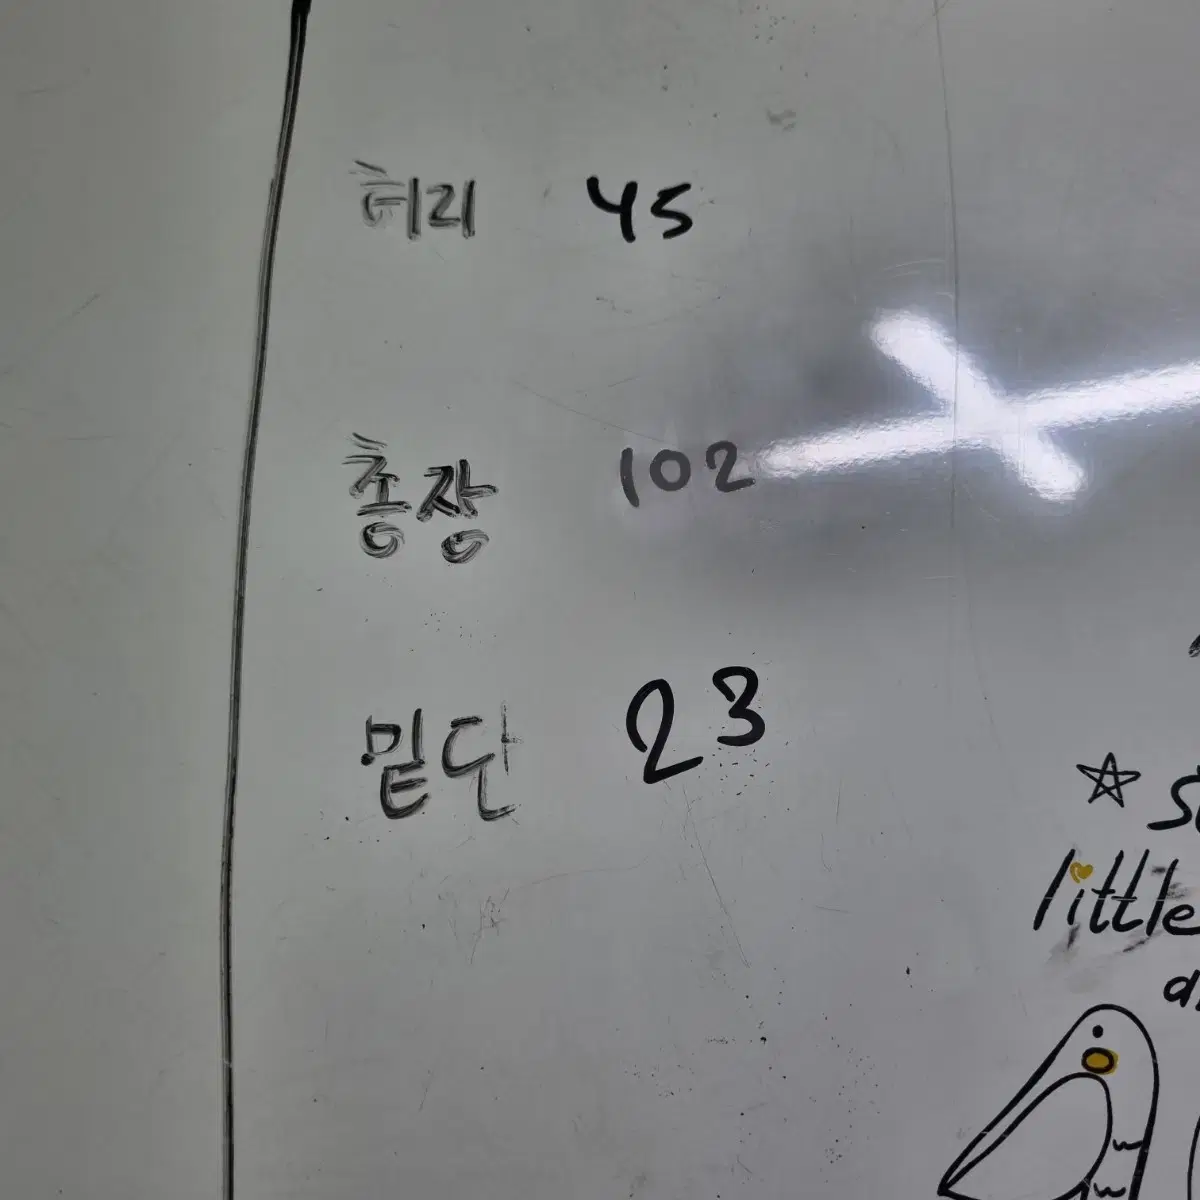 허리 45
총장 102
밑단 23
little